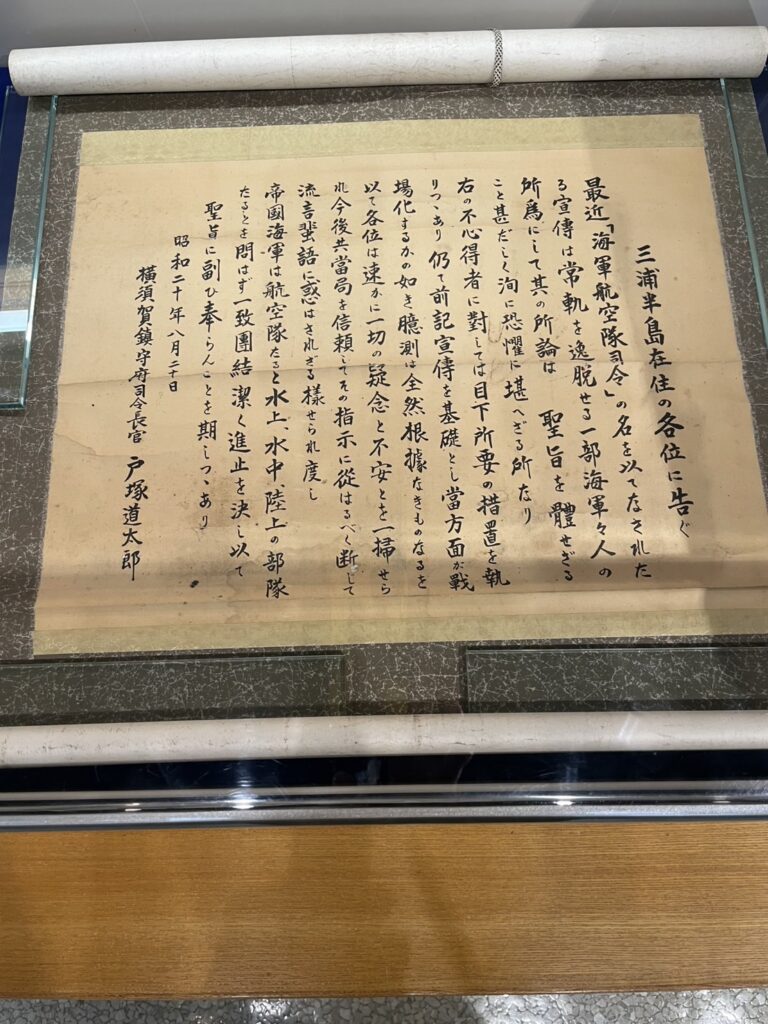 三浦半島在住の各位に告ぐ
最近「海軍航空隊司令」の名を以てなされた
る宣傳は常軌を逸脱せる一部海軍々人の
所爲にして其の所論は　聖旨を體せざる
こと甚だしく洵に恐懼に堪へざる所なり
右の不心得者に對しては目下所要の措置を執
りつゝあり仍て前記宣傳を基礎とし當方面が戰
場化するかの如き臆測は全然根據なきものなるを
以て各位は速かに一切の疑念と不安とを一掃せら
れ今後共當局を信頼してその指示に從はるべく断じて
流言蜚語に惑はされざる樣せられ度し
帝國海軍は航空隊たると水上、水中、陸上の部隊
たるとを問はず一致團結潔く進止を決し以て
聖旨に副ひ奉らんことを期しつゝあり
昭和二十年八月二十日
横須賀鎮守府司令長官　戸塚道太郎